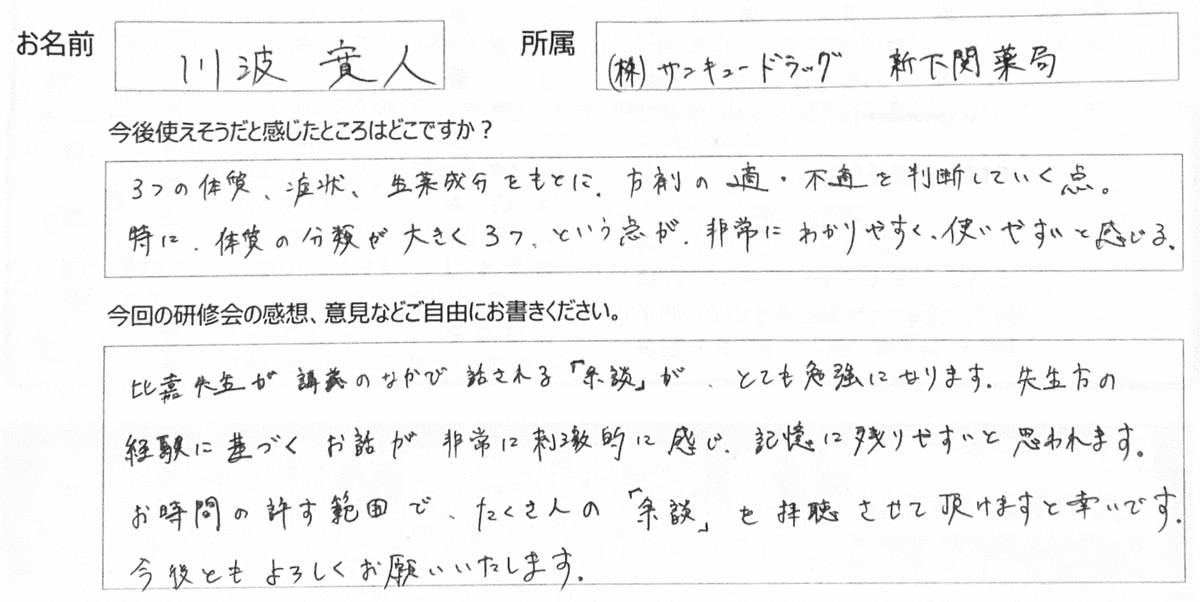 お名前 川波 寛人 所属 (株)サンキュードラッグ 新下関薬局
今後使えそうだと感じたところはどこですか？
3つの体質、症状、生薬成分をもとに、方剤の適・不適を判断していく点。
特に、体質の分類が大きく3つ、という点が、非常にわかりやすく、使いやすいと感じる。
今回の研修会の感想、意見などご自由にお書きください。
比嘉先生が講義のなかで話される「余談」が、とても勉強になります。先生方の
経験に基づくお話が非常に刺激的に感じ、記憶に残りやすいと思われます。
お時間の許す範囲で、たくさんの「余談」を拝聴させて頂けますと幸いです。
今後ともよろしくお願いいたします。